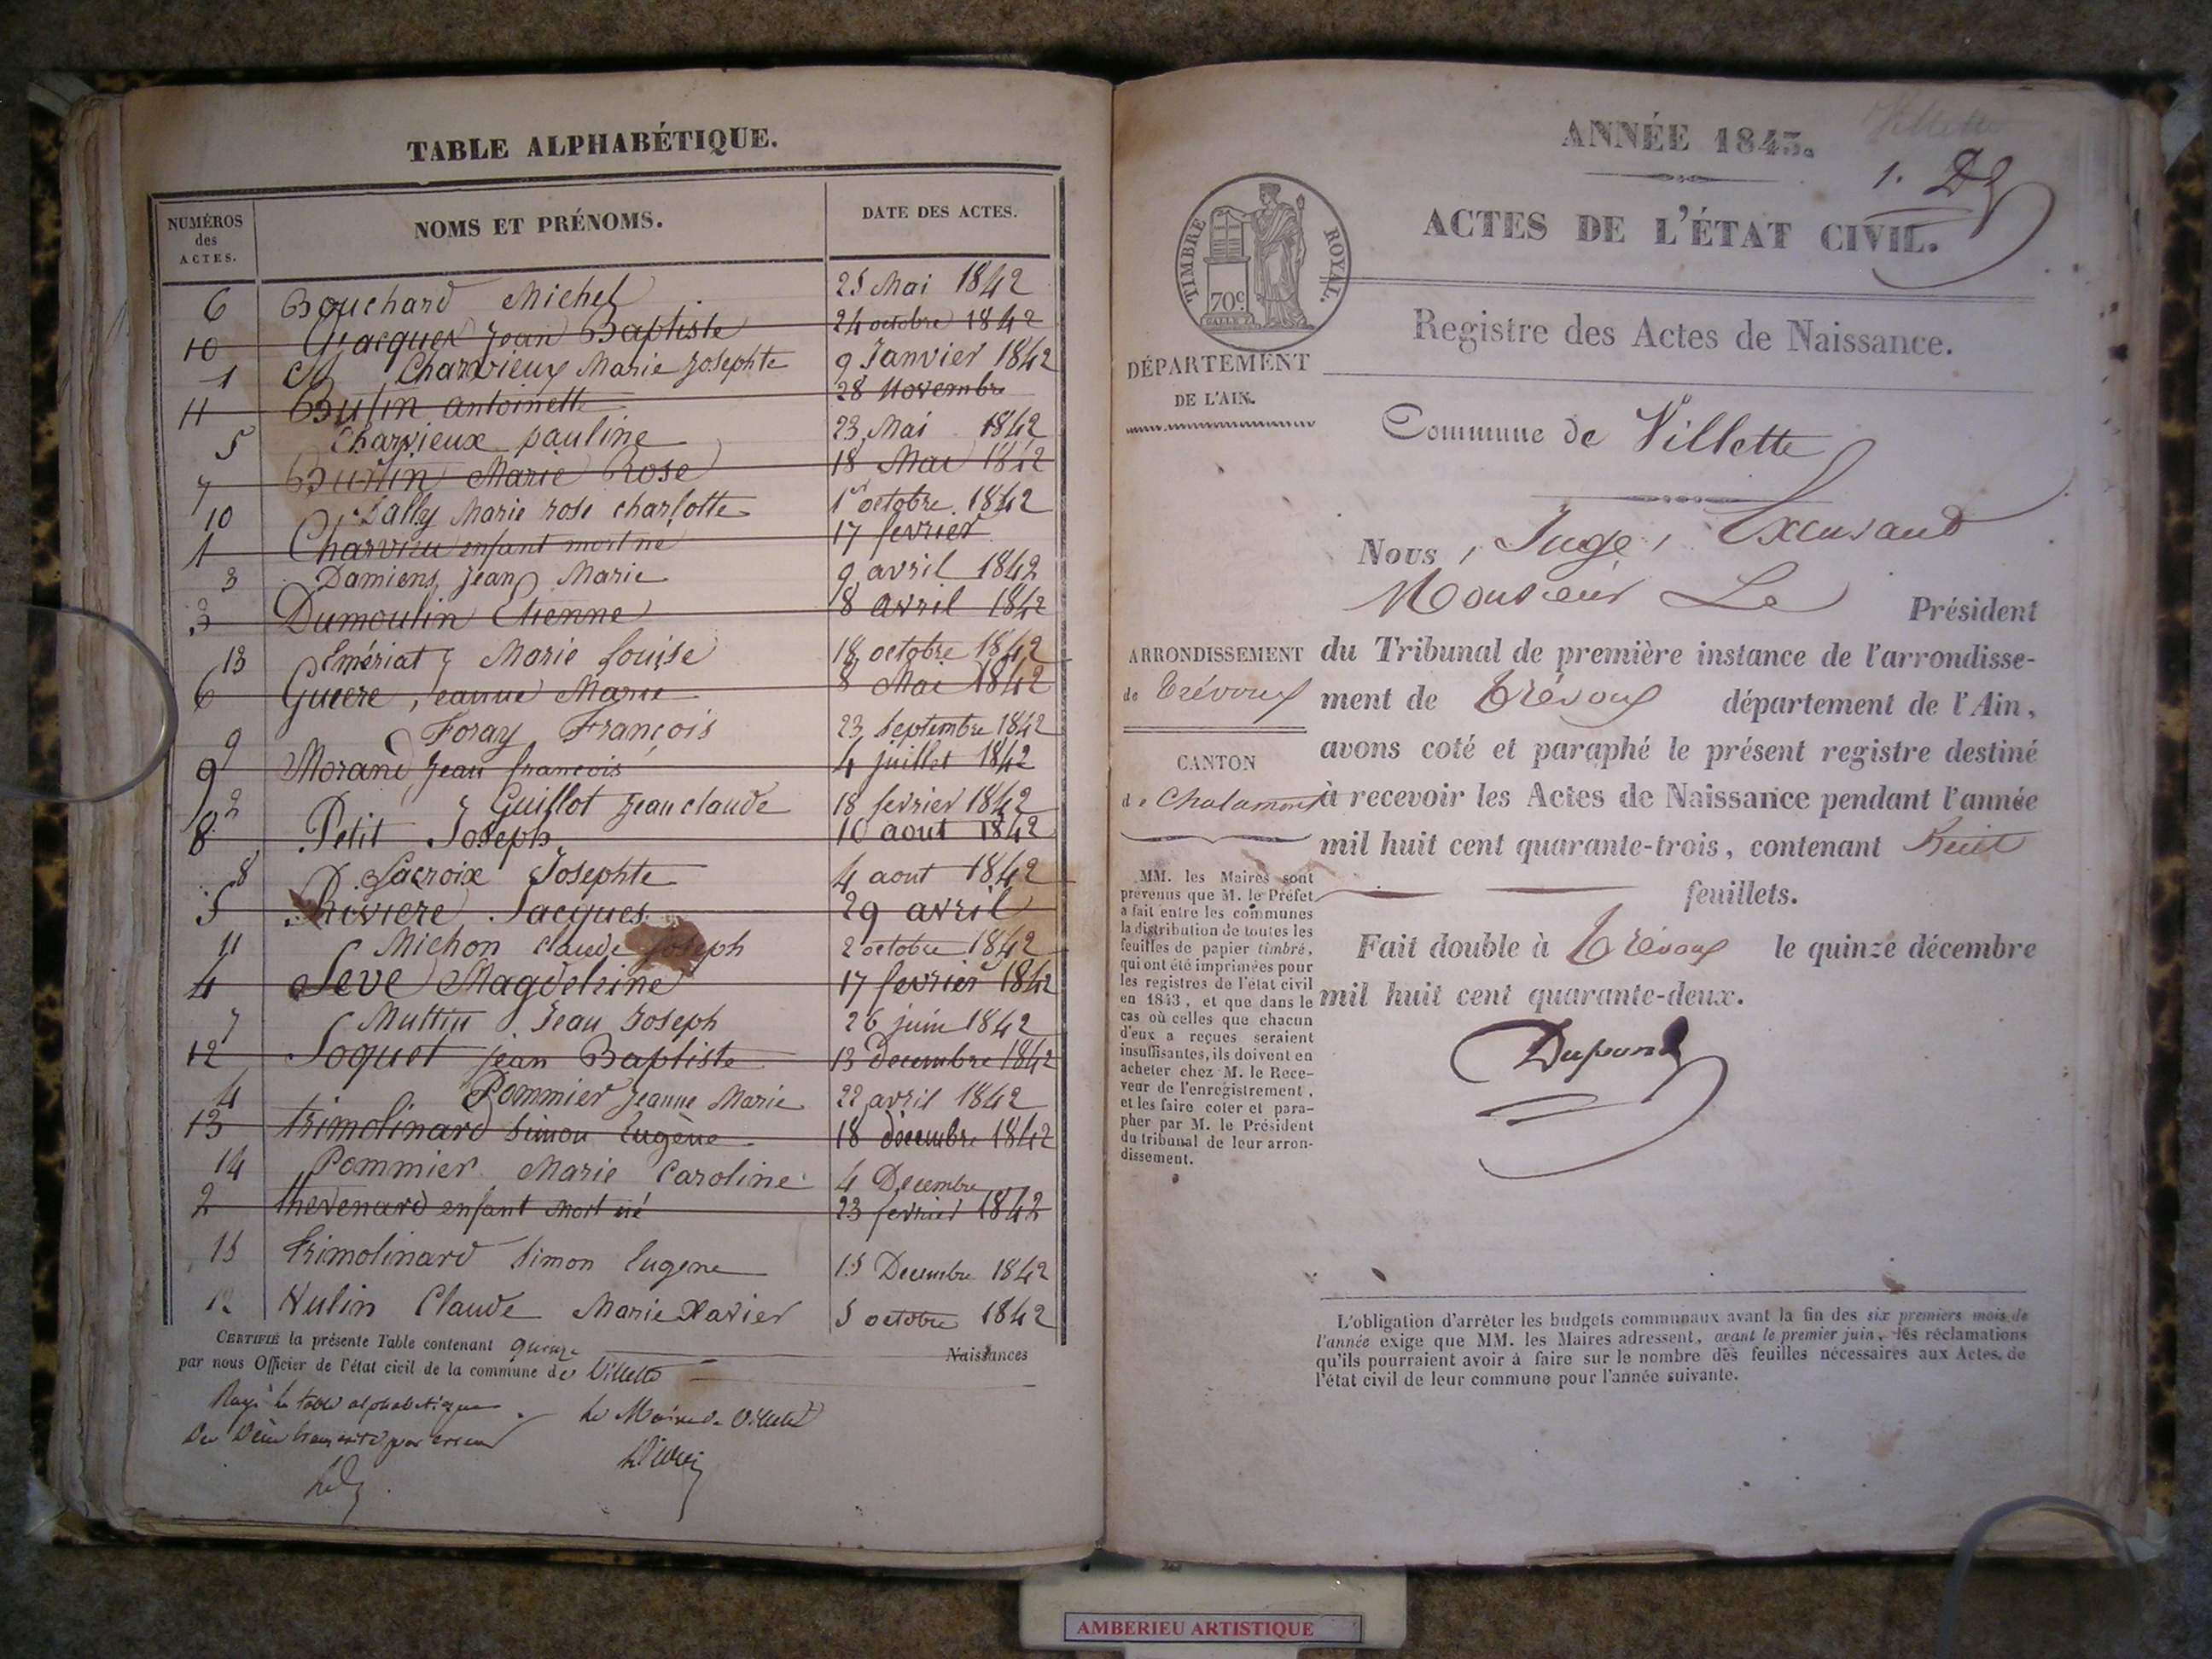 TABLE ALPHABÉTIQUE.
NUMÉROS des ACTES. NOMS ET PRÉNOMS. DATE DES ACTES.
6 Bouchard Michel 25 Mai 1842
10 Jean Baptiste 24 octobre 1842
1 Charvieux Marie Josephte 9 Janvier 1842
11 Butin antoinette 28 Novembre
5 Charvieux pauline 23 Mai 1842
7 Marie Rose 18 Mai 1842
10 Lally Marie rose charlotte 1er octobre 1842
1 Charvieu enfant mort né 17 fevrier
3 Damiens jean Marie 9 avril 1842
3 Dumoulin Etienne 8 avril 1842
13 Emériat Marie Louise 18 octobre 1842
6 Jeanne Marie 8 Mai 1842
9 Foray François 23 Septembre 1842
9 Morand Jean francois 4 juillet 1842
2 Guillot Jean claude 18 fevrier 1842
8 Petit Joseph 10 aout 1842
8 Lacroix Josephte 4 aout 1842
5 Riviere Jacques 29 avril
11 Michon Claude Joseph 2 octobre 1842
4 Seve Magdeleine 17 fevrier 1842
7 Jean Joseph 26 juin 1842
12 Soquet jean Baptiste 13 decembre 1842
4 Pommier Jeanne Marie 22 avril 1842
13 trimolinard Simon Eugène 18 décembre 1842
14 Pommier Marie Caroline 4 Decembre
2 thevenard enfant mort né 23 fevrier 1842
15 trimolinard Simon Eugene 15 Decembre 1842
12 Vulin Claude Marie Xavier 5 octobre 1842
CERTIFIÉ la présente Table contenant quinze Naissances
par nous Officier de l'état civil de la commune de Villette
Rayé la table alphabétique Le Maire de Villette
par erreur
Villette
ANNÉE 1843.
1.
ACTES DE L'ÉTAT CIVIL.
TIMBRE ROYAL.
70c
Registre des Actes de Naissance.
DÉPARTEMENT
DE L'AIN.
Commune de Villette
Nous, Juge, Excusant
Monsieur Le Président
ARRONDISSEMENT
de Trévoux
CANTON
de Chalamont
du Tribunal de première instance de l'arrondisse-
ment de Trévoux département de l'Ain,
avons coté et paraphé le présent registre destiné
à recevoir les Actes de Naissance pendant l'année
mil huit cent quarante-trois, contenant huit
feuillets.
Fait double à Trévoux le quinze décembre
mil huit cent quarante-deux.
Dupond
MM. les Maires sont
prévenus que M. le Préfet
a fait entre les communes
la distribution de toutes les
feuilles de papier timbré,
qui ont été imprimées pour
les registres de l'état civil
en 1843, et que dans le
cas où celles que chacun
d'eux a reçues seraient
insuffisantes, ils doivent en
acheter chez M. le Rece-
veur de l'enregistrement,
et les faire coter et para-
pher par M. le Président
du tribunal de leur arron-
dissement.
L'obligation d'arrêter les budgets communaux avant la fin des six premiers mois de
l'année exige que MM. les Maires adressent, avant le premier juin, les réclamations
qu'ils pourraient avoir à faire sur le nombre des feuilles nécessaires aux Actes de
l'état civil de leur commune pour l'année suivante.
AMBERIEU ARTISTIQUE